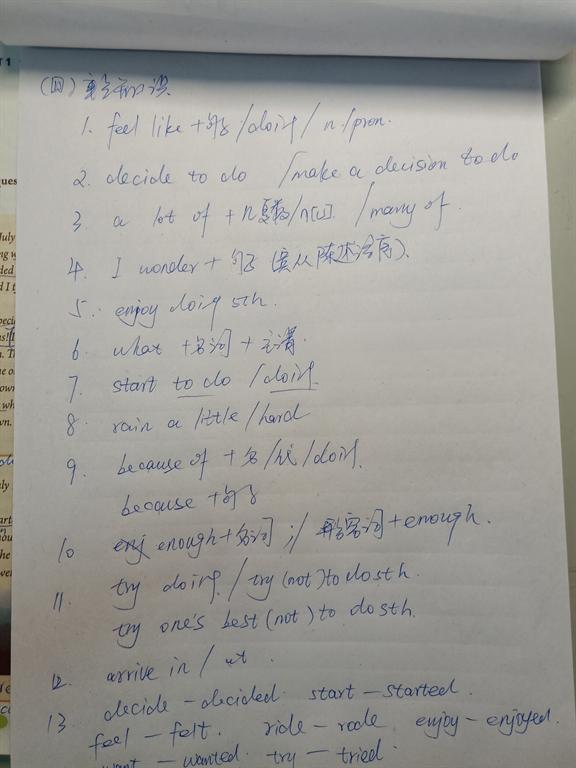 (四) 重知识
1. feel like + 句子 / doing / n. / pron.
2. decide to do / make a decision to do
3. a lot of + n复数 / n[u]. / many of.
4. I wonder + 句子 (宾从 陈述语序).
5. enjoy doing sth.
6. what + 名词 + 主谓.
7. start to do / doing.
8. rain a little / hard
9. because of + 名 / 代 / doing.
because + 句子
10 enj enough + 名词 ; / 形容词 + enough.
11. try doing. / try (not) to do sth.
try one's best (not) to do sth.
12. arrive in / at.
13. decide - decided. start - started.
feel - felt. ride - rode enjoy - enjoyed.
want - wanted. try - tried.
T 1
ques
July